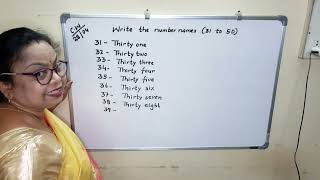 C.W
28/04
Write the number names (31 to 50)
31 - Thirty one
32 - Thirty two
33 - Thirty three
34 - Thirty four
35 - Thirty five
36 - Thirty six
37 - Thirty seven
38 - Thirty eight
39 -